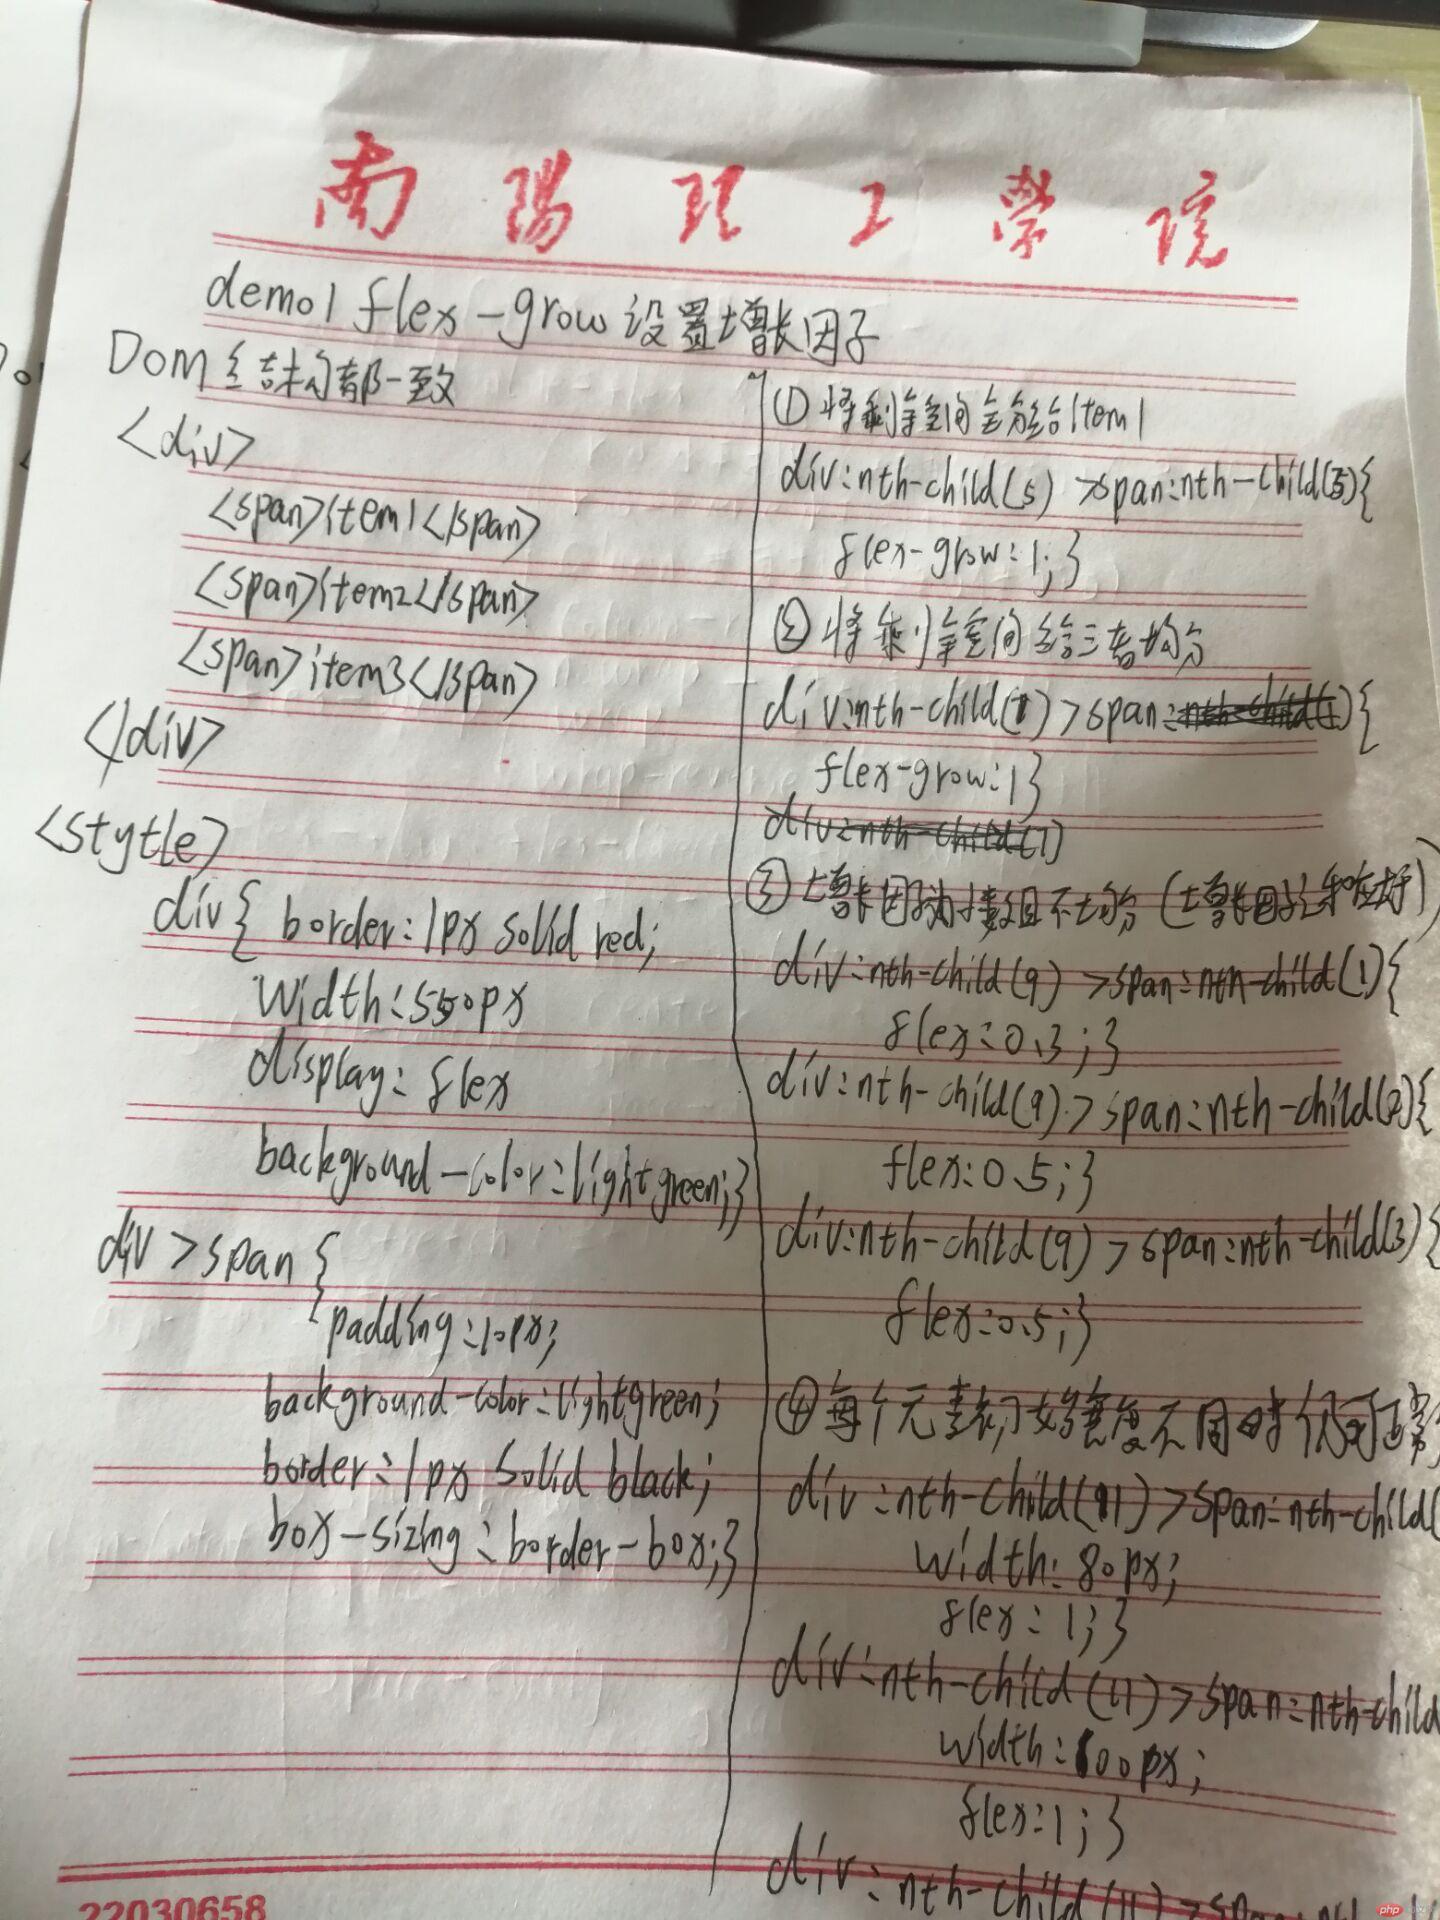 南阳理工学院
demo1 flex-grow设置增长因子
Dom结构都一致
<div>
<span>item1</span>
<span>item2</span>
<span>item3</span>
</div>
<stytle>
div{ border:1px solid red;
width:550px
display:flex
background-color:lightgreen;}
div>span{
padding:10px;
background-color:lightgreen;
border:1px solid black;
box-sizing:border-box;}
①将剩余空间全分给item1
div:nth-child(5) >span:nth-child(5){
flex-grow:1;}
②将剩余空间给三者均分
div:nth-child(7)>span:nth-child(1){
flex-grow:1}
div:nth-child(7)
③增长因子为小数且不均分(增长因子之和
div:nth-child(9)>span:nth-child(1){
flex:0.3;}
div:nth-child(9)>span:nth-child(2){
flex:0.5;}
div:nth-child(9)>span:nth-child(3){
flex:0.5;}
④每个元素初始宽度不同时仍可正常
div:nth-child(11)>span:nth-child(
width:80px;
flex:1;}
div:nth-child(11)>span:nth-child
width:100px;
flex:1;}
div:nth-child(11)>span:
22030658
php